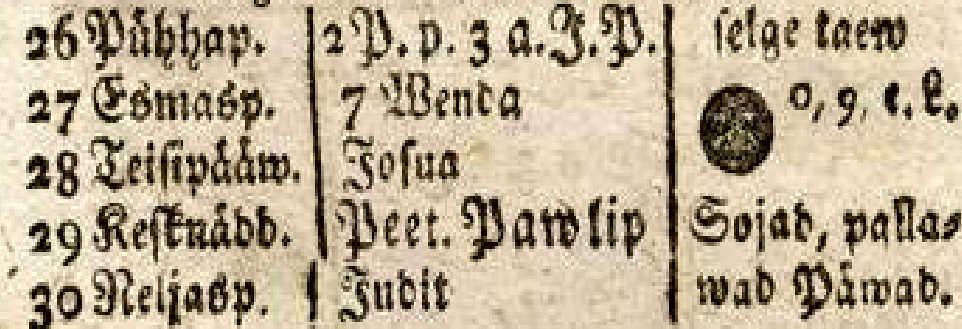 26 Pühhap. 2 P. p. 3 a. J. P. selge kaew
27 Esmasp. 7 Wenda 0, 9, e. L.
28 Teisipääw. Josua
29 Kesknädd. Peet. Pawlip Sojad, palla⸗
30 Neljasp. Judit wad Päwad.